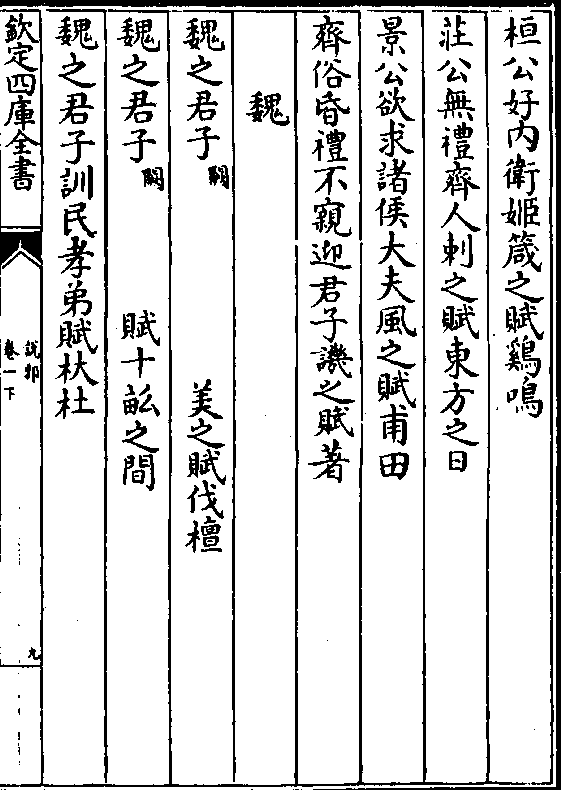 桓公好内衛姬箴之賦鷄鳴
莊公無禮齊人刺之賦東方之日
景公欲求諸侯大夫風之賦甫田
齊俗昏禮不親迎君子譏之賦著
魏
魏之君子闕 美之賦伐檀
魏之君子闕 賦十畝之間
魏之君子訓民孝弟賦杕杜
欽定四庫全書
說郛
卷一下
九